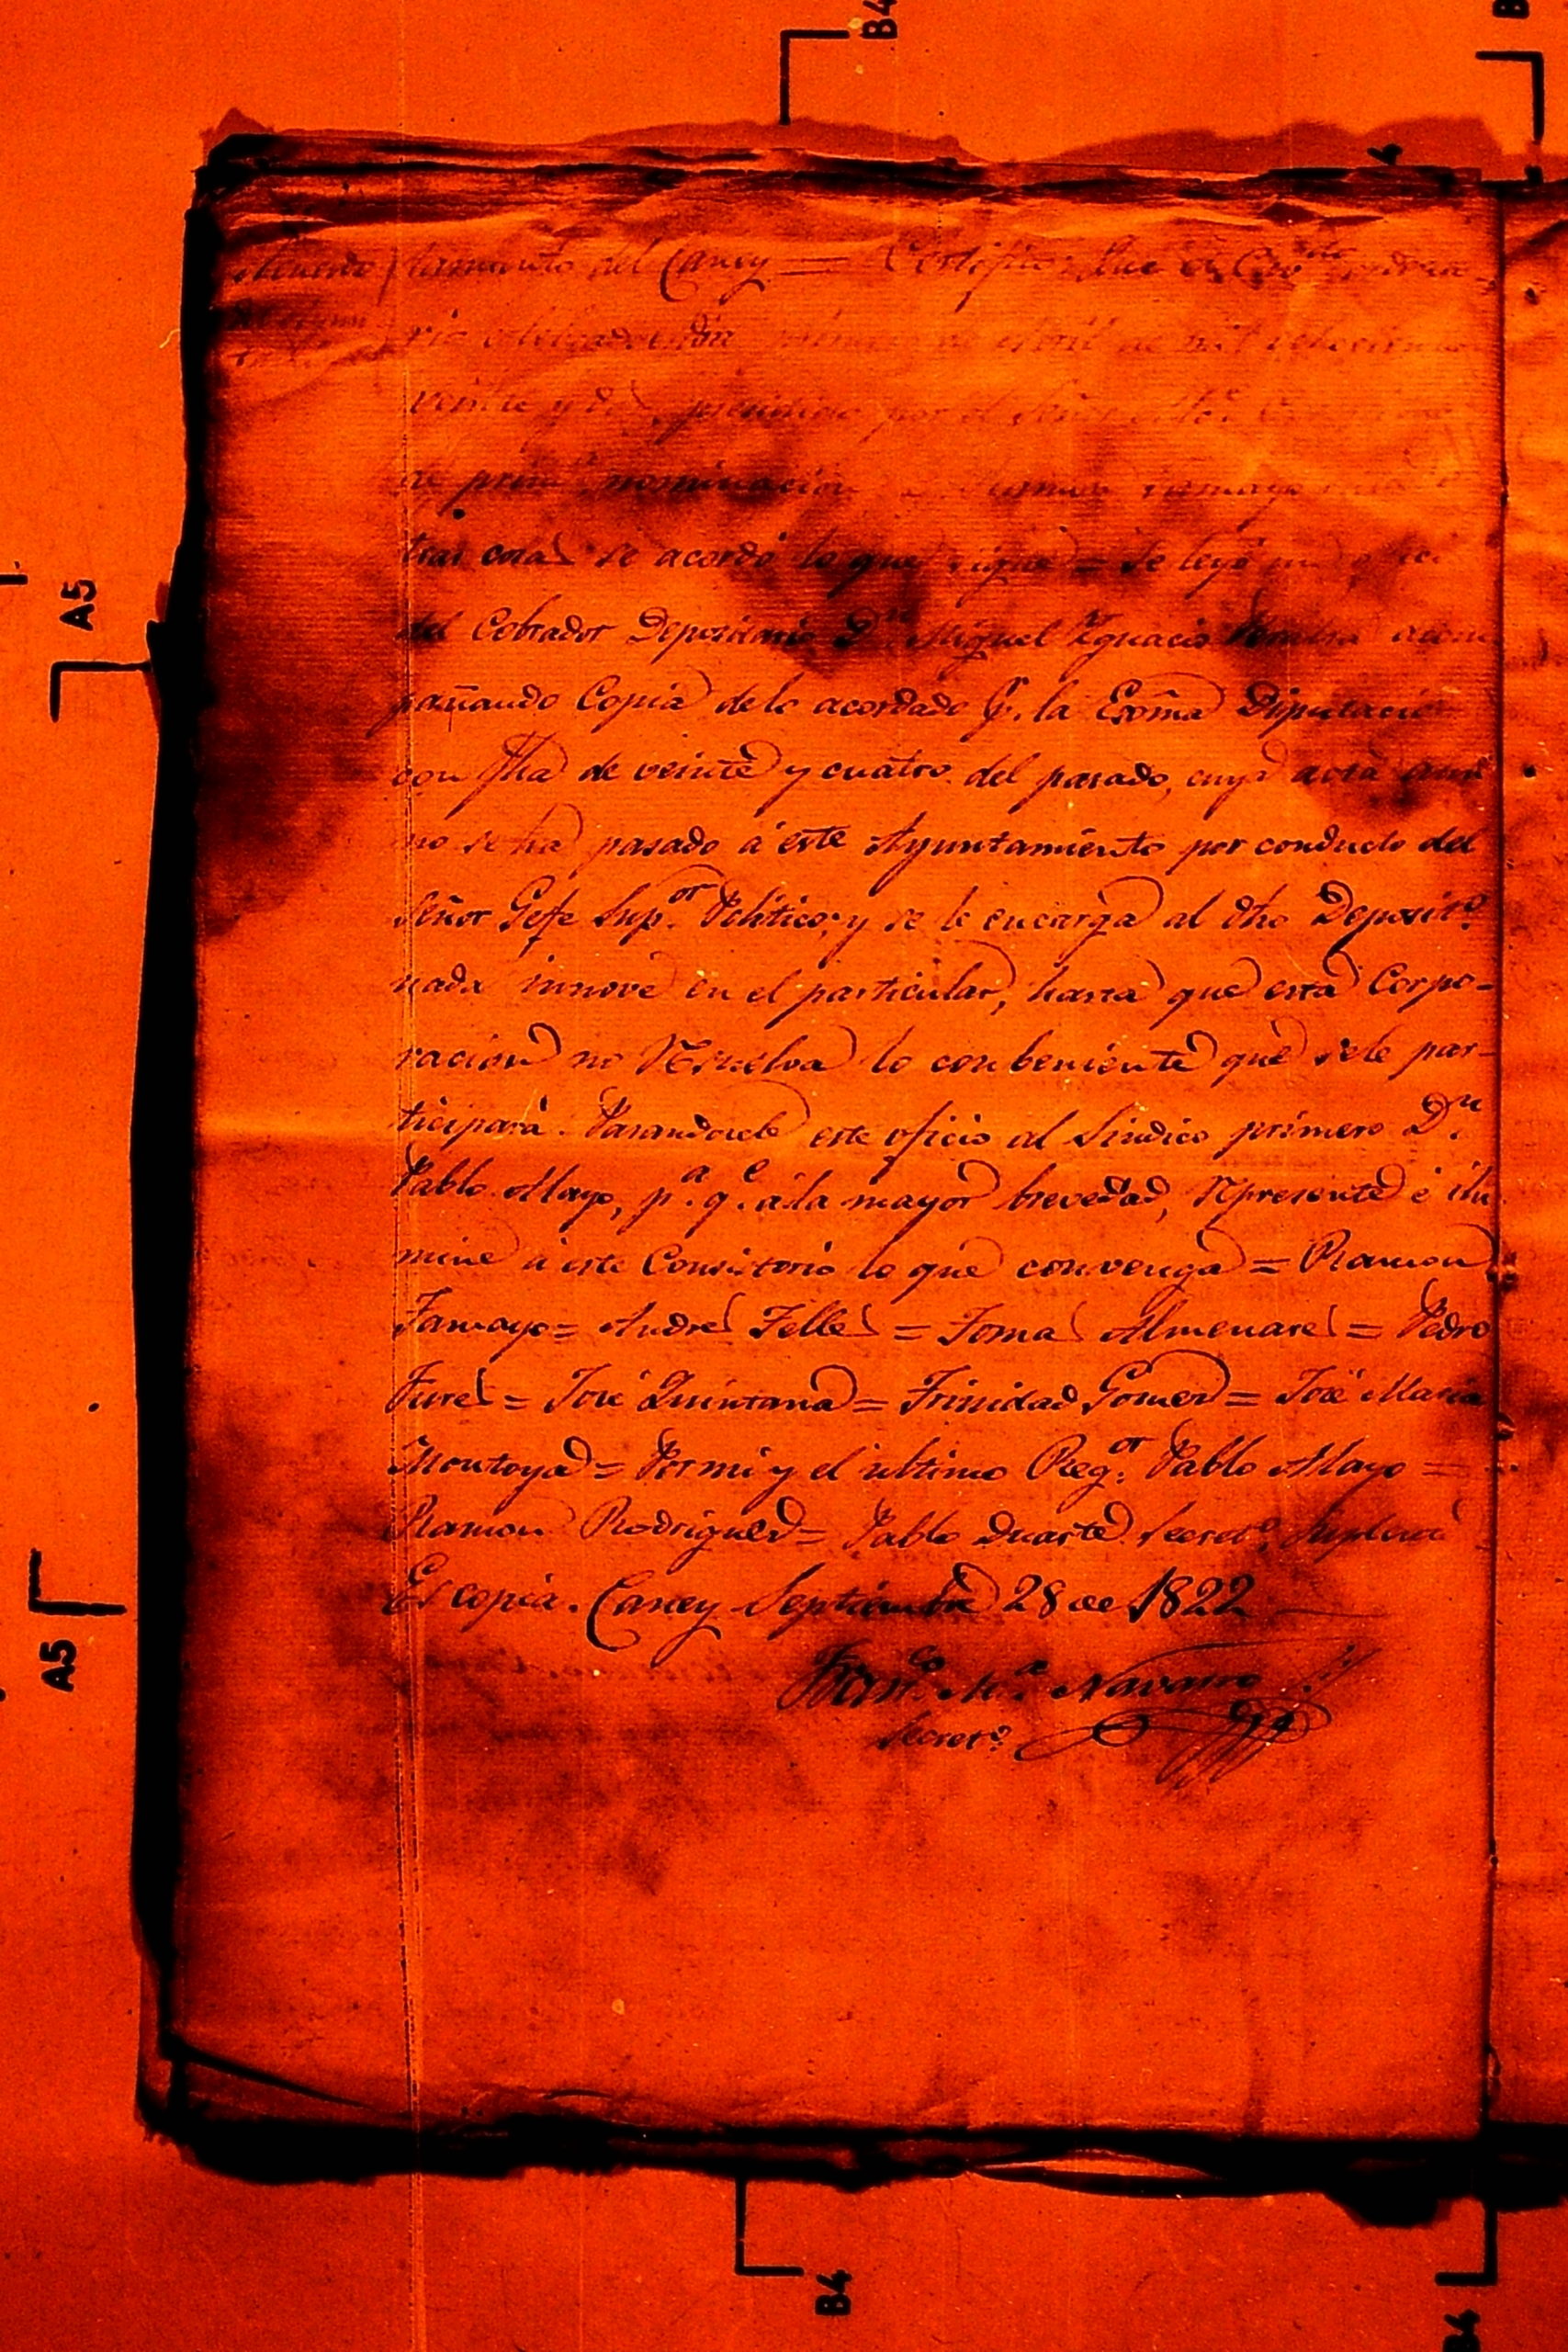 B4
A5
Acuerdo
tamiento del Caney = Certifico: Que en Cavdo ordina-
rio celebrado el dia primero de Abril de mil ochocientos
veinte y dos, presidido por el Señor
de primª nominacion Ramon Tamayo
tras cosas se acordó lo que sigue = Se leyó un oficio
del Cobrador Depositario Dn Miguel Ygnacio acom
pañando Copia de lo acordado p.r la Exma Diputacion
con fha de veinte y cuatro del pasado, cuya acta aun
no se ha pasado á este Ayuntamiento por conducto del
Señor Gefe Sup.or Politico; y se le encarga al dho Deposit.o
nada innove en el particular, hasta que esta Corpo-
racion no resuelva lo conbeniente que se le par-
ticipará. Pasandosele este oficio al Sindico primero D.n
Pablo Mayo, p.a q.e á la mayor brevedad, represente é ilu
mine á este Consistorio lo que convenga = Ramon
Tamayo = Andres Telles = Tomas Almenares = Pedro
Tures = José Quintana = Trinidad Gomez = José Maria
Montoya = Por mi y el ultimo Reg.or Pablo Mayo =
Ramon Rodriguez = Pablo Duarte Secret.o Suplente
Es copia. Caney Septiembre 28 de 1822
Fran.co M.a Navarro
Secret.o
A5
B4